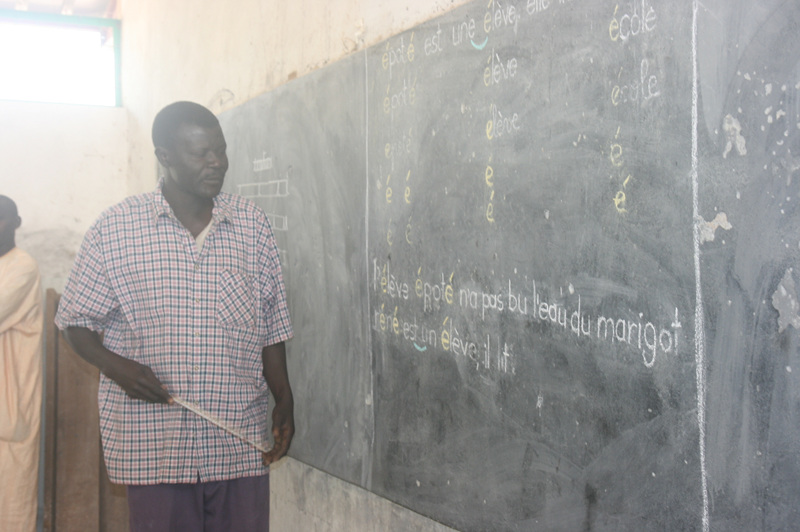 époté est une élève, elle
école
époté
élève
école
époté
élève
é
é
é
é
é
é
é
l'élève époté n'a pas bu l'eau du marigot
réné est un élève, il lit.